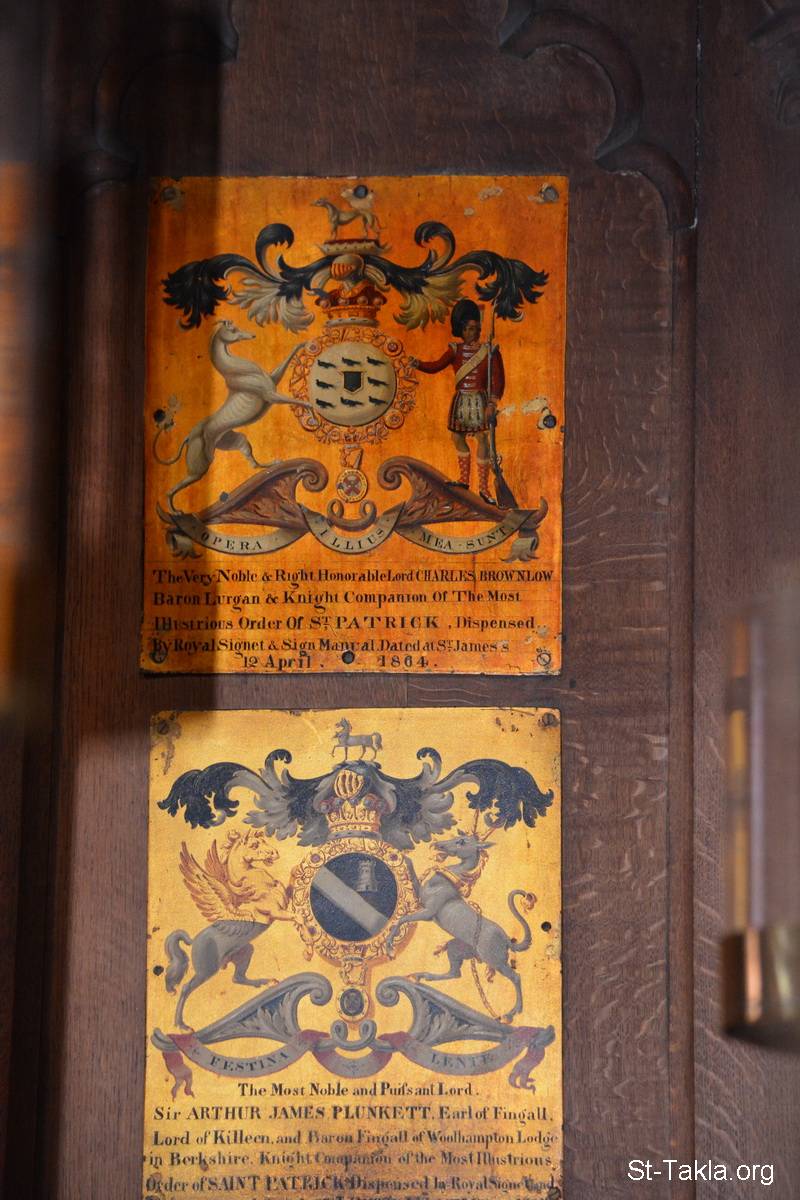 OPERA ILLIUS MEA·SUNT
The Very Noble & Right Honorable Lord CHARLES BROWNLOW
Baron Lurgan & Knight Companion Of The Most
Illustrious Order Of ST PATRICK, Dispensed
By Royal Signet & Sign Manual, Dated at St James's
12 April. 1864.
FESTINA LENTE
The Most Noble and Puifsant Lord.
Sir ARTHUR JAMES PLUNKETT, Earl of Fingall,
Lord of Killeen, and Baron Fingall of Woolhampton Lodge
in Berkshire, Knight Companion of the Most Illustrious
Order of SAINT PATRICK Dispensed by Royal Signet and
St-Takla.org